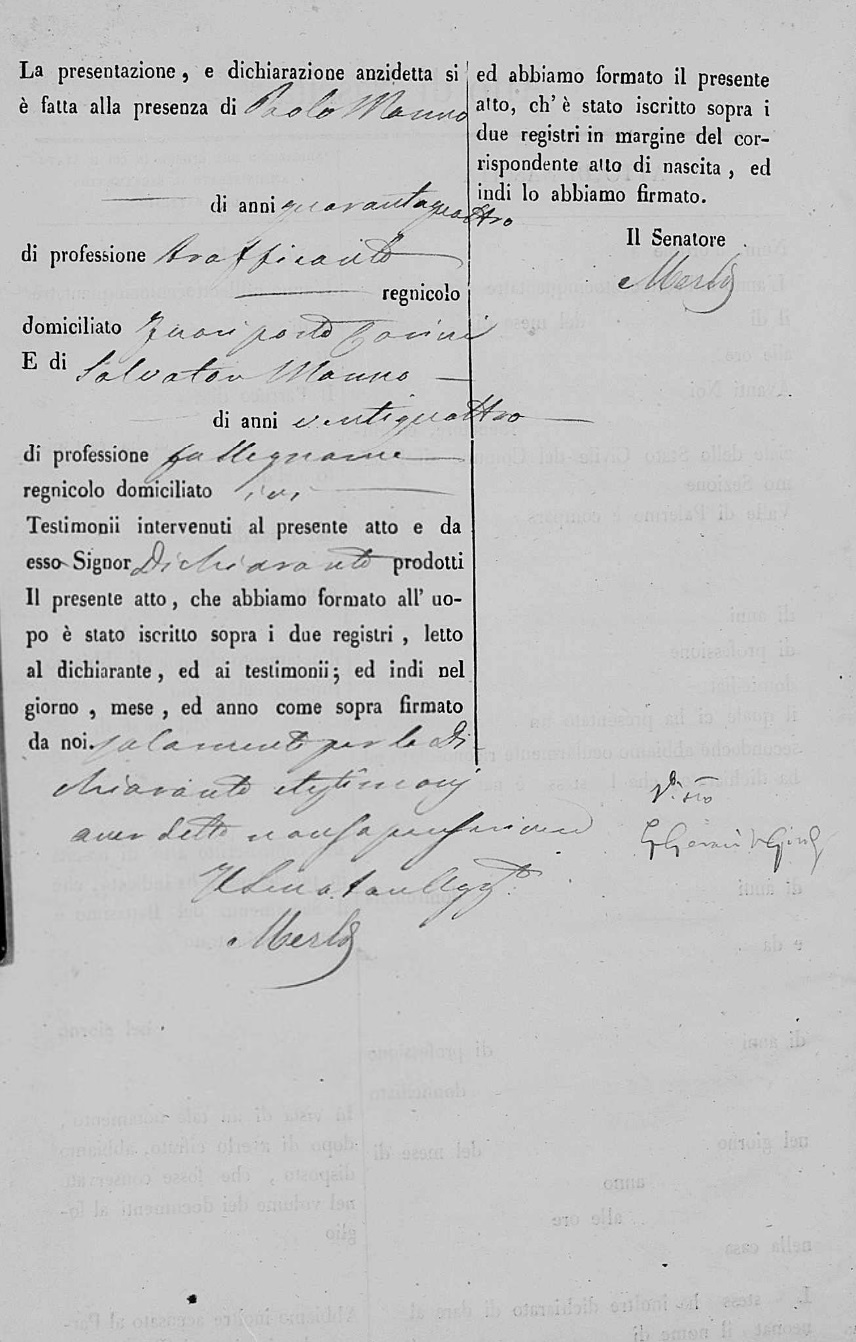 La presentazione, e dichiarazione anzidetta si
è fatta alla presenza di Paolo Manno
di anni quarantaquattro
di professione trafficante
regnicolo
domiciliato fuori porta
E di Salvatore Manno
di anni ventiquattro
di professione fallegname
regnicolo domiciliato ivi
Testimonii intervenuti al presente atto e da
esso Signor Dichiarante prodotti
Il presente atto, che abbiamo formato all' uo-
po è stato iscritto sopra i due registri, letto
al dichiarante, ed ai testimonii; ed indi nel
giorno, mese, ed anno come sopra firmato
da noi. solamente per la di
chiarante e testimonj
aver detto non sapere scrivere
Il Senatore Agg.to
Merlo
ed abbiamo formato il presente
atto, ch' è stato iscritto sopra i
due registri in margine del cor-
rispondente atto di nascita, ed
indi lo abbiamo firmato.
Il Senatore
Merlo